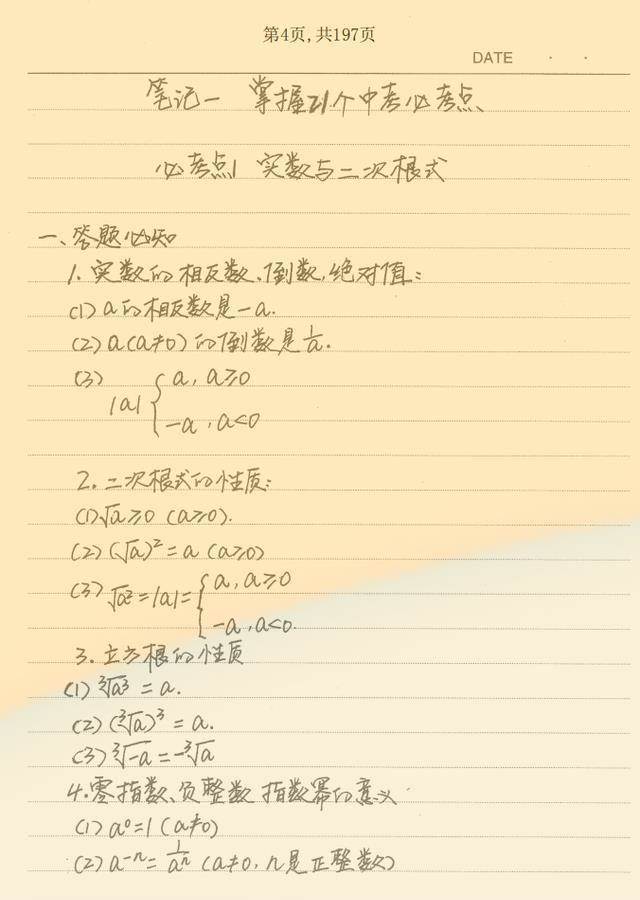 第4页,共197页
DATE · ·
笔记一 掌握21个中考必考点、
必考点1 实数与二次根式
一、答题必知
1. 实数的相反数、倒数,绝对值:
(1) a的相反数是-a.
(2) a(a≠0)的倒数是1/a.
(3) |a| { a, a≥0
-a, a<0
2. 二次根式的性质:
(1) √a≥0 (a≥0).
(2) (√a)² = a (a≥0)
(3) √a² = |a| = { a, a≥0
-a, a<0.
3. 立方根的性质
(1) ∛a³ = a.
(2) (∛a)³ = a.
(3) ∛-a = -∛a
4. 零指数、负整数指数幂的意义
(1) a⁰=1 (a≠0)
(2) a⁻ⁿ = 1/aⁿ (a≠0, n是正整数)